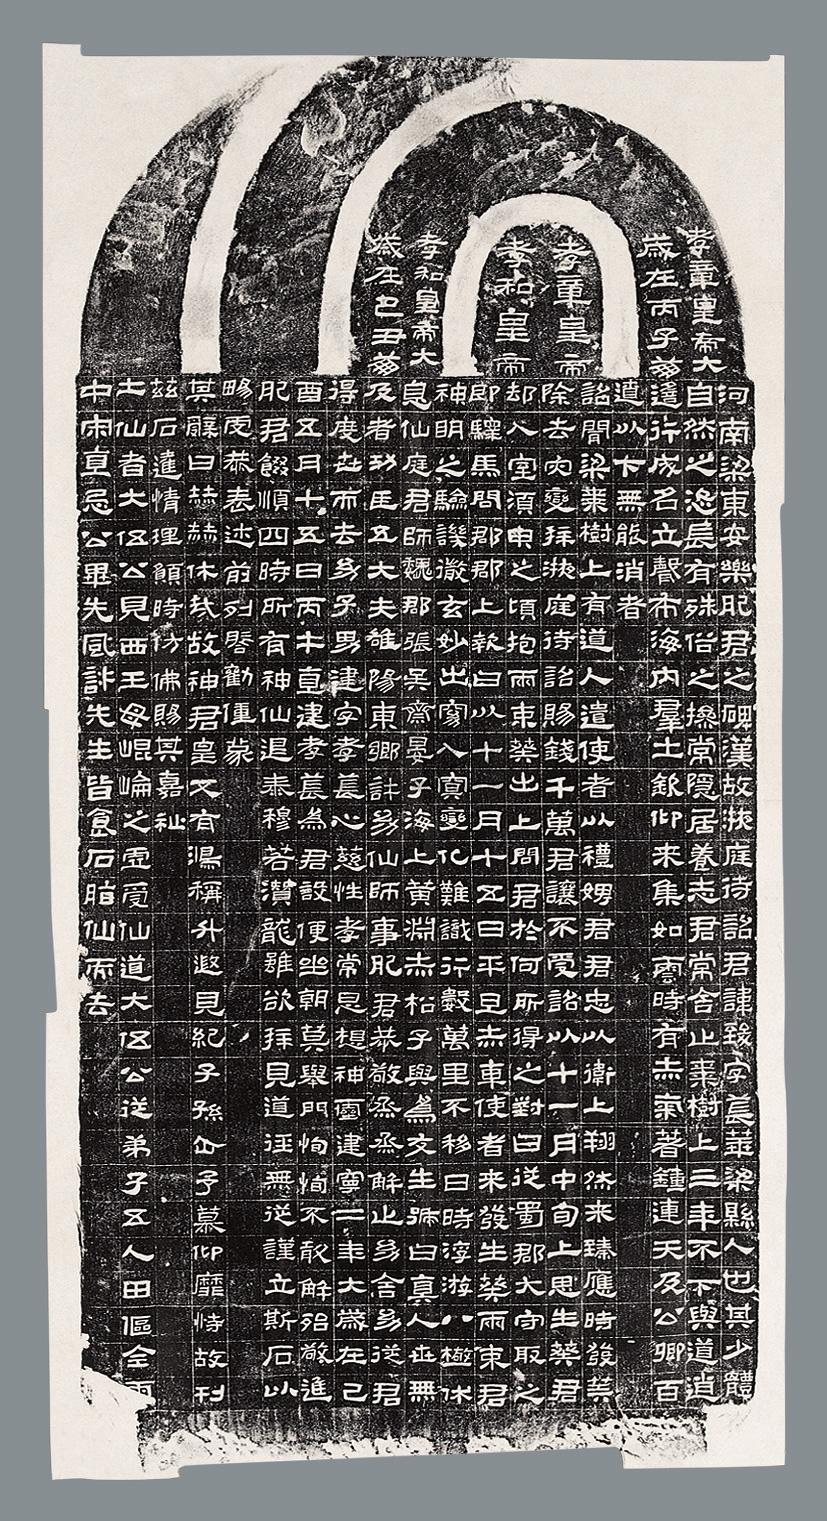 孝章皇帝
孝和皇帝
孝章皇帝大
歲在丙子崩
孝和皇帝大
歲在己丑崩
河南梁東安樂肥君之碑漢故掖庭待詔君諱致字萇華梁縣人也其少體
自然之恣長有殊俗之操常隱居養志君常舍止棗樹上三年不下與道逍
遙行成名立聲布海內羣士欽仰來集如雲時有赤氣著鐘連天及公卿百
遣以下無能消者
詔聞梁棗樹上有道人遣使者以禮娉君君忠以衛上翔然來臻應時發筭
除去灾變拜掖庭待詔賜錢千萬君讓不受詔以十一月中旬上思生葵君
却入室須臾之頃抱兩束葵出上問君於何所得之對曰從蜀郡大守取之
即驛馬問郡郡上報曰以十一月十五日平旦赤車使者來發生葵兩束君
神明之驗譏徹玄妙出窈入冥變化難識行數萬里不移日時浮游八極休
息仙庭君師魏郡張吳齋晏子海上黃淵赤松子與為友生號曰真人世無
及者功臣五大夫雒陽東鄉許幼仙師事肥君恭敬烝烝解止幼舍幼從君
得度世而去幼子男建字孝萇心慈性孝常思想神靈建寧二年大歲在己
酉五月十五日丙午直建孝萇為君設便坐朝莫舉門恂恂不敢解殆敬進
肥君餟順四時所有神仙退泰穆若潛龍雖欲拜見道徑無從謹立斯石以
暢虔恭表述前列啓勸僮蒙
其辭曰赫赫休哉故神君皇又有鴻稱升遐見紀子孫企予慕仰靡恃故刊
茲石達情理願時仿佛賜其嘉祉
土仙者大伍公見西王母崐崘之虛受仙道大伍公從弟子五人田傴全雨
中宋直忌公畢先風許先生皆食石脂仙而去